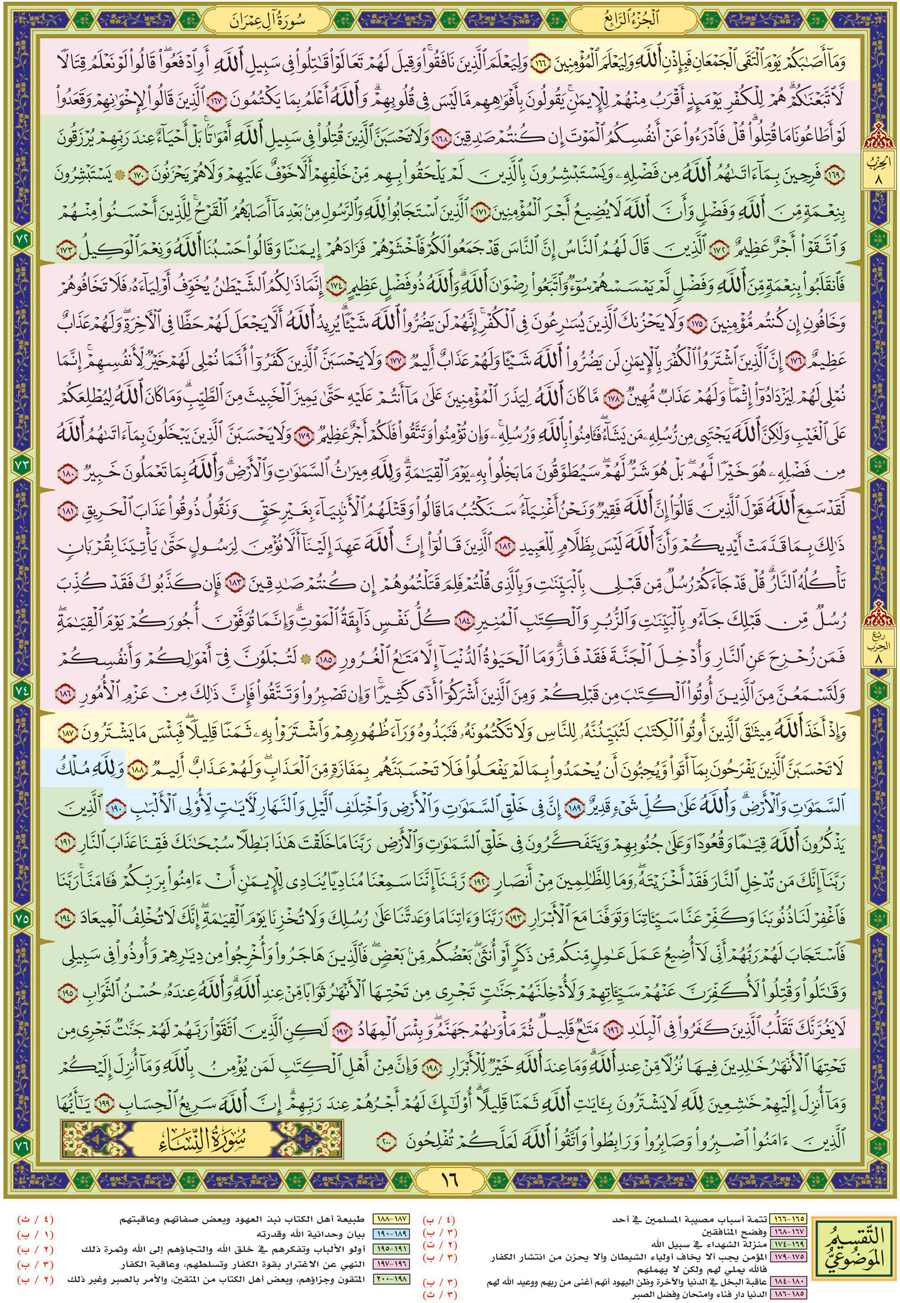 الْجُزْءُ الرَّابِعُ
سُورَةُ آلِ عِمْرَانَ
وَمَآ أَصَٰبَكُمْ يَوْمَ ٱلْتَقَى ٱلْجَمْعَانِ فَبِإِذْنِ ٱللَّهِ وَلِيَعْلَمَ ٱلْمُؤْمِنِينَ ١٦٦ وَلِيَعْلَمَ ٱلَّذِينَ نَافَقُوا۟ ۚ وَقِيلَ لَهُمْ تَعَالَوْا۟ قَٰتِلُوا۟ فِى سَبِيلِ ٱللَّهِ أَوِ ٱدْفَعُوا۟ ۖ قَالُوا۟ لَوْ نَعْلَمُ قِتَالًا
لَّٱتَّبَعْنَٰكُمْ ۗ هُمْ لِلْكُفْرِ يَوْمَئِذٍ أَقْرَبُ مِنْهُمْ لِلْإِيمَٰنِ ۚ يَقُولُونَ بِأَفْوَٰهِهِم مَّا لَيْسَ فِى قُلُوبِهِمْ ۗ وَٱللَّهُ أَعْلَمُ بِمَا يَكْتُمُونَ ١٦٧ ٱلَّذِينَ قَالُوا۟ لِإِخْوَٰنِهِمْ وَقَعَدُوا۟
لَوْ أَطَاعُونَا مَا قُتِلُوا۟ ۗ قُلْ فَٱدْرَءُوا۟ عَنْ أَنفُسِكُمُ ٱلْمَوْتَ إِن كُنتُمْ صَٰدِقِينَ ١٦٨ وَلَا تَحْسَبَنَّ ٱلَّذِينَ قُتِلُوا۟ فِى سَبِيلِ ٱللَّهِ أَمْوَٰتًۢا ۚ بَلْ أَحْيَآءٌ عِندَ رَبِّهِمْ يُرْزَقُونَ
١٦٩ فَرِحِينَ بِمَآ ءَاتَىٰهُمُ ٱللَّهُ مِن فَضْلِهِۦ وَيَسْتَبْشِرُونَ بِٱلَّذِينَ لَمْ يَلْحَقُوا۟ بِهِم مِّنْ خَلْفِهِمْ أَلَّا خَوْفٌ عَلَيْهِمْ وَلَا هُمْ يَحْزَنُونَ ١٧٠ ۞ يَسْتَبْشِرُونَ
بِنِعْمَةٍ مِّنَ ٱللَّهِ وَفَضْلٍ وَأَنَّ ٱللَّهَ لَا يُضِيعُ أَجْرَ ٱلْمُؤْمِنِينَ ١٧١ ٱلَّذِينَ ٱسْتَجَابُوا۟ لِلَّهِ وَٱلرَّسُولِ مِنۢ بَعْدِ مَآ أَصَابَهُمُ ٱلْقَرْحُ ۚ لِلَّذِينَ أَحْسَنُوا۟ مِنْهُمْ
وَٱتَّقَوْا۟ أَجْرٌ عَظِيمٌ ١٧٢ ٱلَّذِينَ قَالَ لَهُمُ ٱلنَّاسُ إِنَّ ٱلنَّاسَ قَدْ جَمَعُوا۟ لَكُمْ فَٱخْشَوْهُمْ فَزَادَهُمْ إِيمَٰنًا وَقَالُوا۟ حَسْبُنَا ٱللَّهُ وَنِعْمَ ٱلْوَكِيلُ ١٧٣
فَٱنقَلَبُوا۟ بِنِعْمَةٍ مِّنَ ٱللَّهِ وَفَضْلٍ لَّمْ يَمْسَسْهُمْ سُوٓءٌ وَٱتَّبَعُوا۟ رِضْوَٰنَ ٱللَّهِ ۗ وَٱللَّهُ ذُو فَضْلٍ عَظِيمٍ ١٧٤ إِنَّمَا ذَٰلِكُمُ ٱلشَّيْطَٰنُ يُخَوِّفُ أَوْلِيَآءَهُۥ فَلَا تَخَافُوهُمْ
وَخَافُونِ إِن كُنتُم مُّؤْمِنِينَ ١٧٥ وَلَا يَحْزُنكَ ٱلَّذِينَ يُسَٰرِعُونَ فِى ٱلْكُفْرِ ۚ إِنَّهُمْ لَن يَضُرُّوا۟ ٱللَّهَ شَيْـًٔا ۗ يُرِيدُ ٱللَّهُ أَلَّا يَجْعَلَ لَهُمْ حَظًّا فِى ٱلْءَاخِرَةِ ۖ وَلَهُمْ عَذَابٌ
عَظِيمٌ ١٧٦ إِنَّ ٱلَّذِينَ ٱشْتَرَوُا۟ ٱلْكُفْرَ بِٱلْإِيمَٰنِ لَن يَضُرُّوا۟ ٱللَّهَ شَيْـًٔا وَلَهُمْ عَذَابٌ أَلِيمٌ ١٧٧ وَلَا يَحْسَبَنَّ ٱلَّذِينَ كَفَرُوٓا۟ أَنَّمَا نُمْلِى لَهُمْ خَيْرٌ لِّأَنفُسِهِمْ ۚ إِنَّمَا
نُمْلِى لَهُمْ لِيَزْدَادُوٓا۟ إِثْمًا ۚ وَلَهُمْ عَذَابٌ مُّهِينٌ ١٧٨ مَّا كَانَ ٱللَّهُ لِيَذَرَ ٱلْمُؤْمِنِينَ عَلَىٰ مَآ أَنتُمْ عَلَيْهِ حَتَّىٰ يَمِيزَ ٱلْخَبِيثَ مِنَ ٱلطَّيِّبِ ۗ وَمَا كَانَ ٱللَّهُ لِيُطْلِعَكُمْ
عَلَى ٱلْغَيْبِ وَلَٰكِنَّ ٱللَّهَ يَجْتَبِى مِن رُّسُلِهِۦ مَن يَشَآءُ ۖ فَـَٔامِنُوا۟ بِٱللَّهِ وَرُسُلِهِۦ ۚ وَإِن تُؤْمِنُوا۟ وَتَتَّقُوا۟ فَلَكُمْ أَجْرٌ عَظِيمٌ ١٧٩ وَلَا يَحْسَبَنَّ ٱلَّذِينَ يَبْخَلُونَ بِمَآ ءَاتَىٰهُمُ ٱللَّهُ
مِن فَضْلِهِۦ هُوَ خَيْرًا لَّهُم ۖ بَلْ هُوَ شَرٌّ لَّهُمْ ۖ سَيُطَوَّقُونَ مَا بَخِلُوا۟ بِهِۦ يَوْمَ ٱلْقِيَٰمَةِ ۗ وَلِلَّهِ مِيرَٰثُ ٱلسَّمَٰوَٰتِ وَٱلْأَرْضِ ۗ وَٱللَّهُ بِمَا تَعْمَلُونَ خَبِيرٌ ١٨٠
لَّقَدْ سَمِعَ ٱللَّهُ قَوْلَ ٱلَّذِينَ قَالُوٓا۟ إِنَّ ٱللَّهَ فَقِيرٌ وَنَحْنُ أَغْنِيَآءُ ۘ سَنَكْتُبُ مَا قَالُوا۟ وَقَتْلَهُمُ ٱلْأَنۢبِيَآءَ بِغَيْرِ حَقٍّ وَنَقُولُ ذُوقُوا۟ عَذَابَ ٱلْحَرِيقِ ١٨١
ذَٰلِكَ بِمَا قَدَّمَتْ أَيْدِيكُمْ وَأَنَّ ٱللَّهَ لَيْسَ بِظَلَّامٍ لِّلْعَبِيدِ ١٨٢ ٱلَّذِينَ قَالُوٓا۟ إِنَّ ٱللَّهَ عَهِدَ إِلَيْنَآ أَلَّا نُؤْمِنَ لِرَسُولٍ حَتَّىٰ يَأْتِيَنَا بِقُرْبَانٍ
تَأْكُلُهُ ٱلنَّارُ ۗ قُلْ قَدْ جَآءَكُمْ رُسُلٌ مِّن قَبْلِى بِٱلْبَيِّنَٰتِ وَبِٱلَّذِى قُلْتُمْ فَلِمَ قَتَلْتُمُوهُمْ إِن كُنتُمْ صَٰدِقِينَ ١٨٣ فَإِن كَذَّبُوكَ فَقَدْ كُذِّبَ
رُسُلٌ مِّن قَبْلِكَ جَآءُو بِٱلْبَيِّنَٰتِ وَٱلزُّبُرِ وَٱلْكِتَٰبِ ٱلْمُنِيرِ ١٨٤ كُلُّ نَفْسٍ ذَآئِقَةُ ٱلْمَوْتِ ۗ وَإِنَّمَا تُوَفَّوْنَ أُجُورَكُمْ يَوْمَ ٱلْقِيَٰمَةِ ۖ
فَمَن زُحْزِحَ عَنِ ٱلنَّارِ وَأُدْخِلَ ٱلْجَنَّةَ فَقَدْ فَازَ ۗ وَمَا ٱلْحَيَوٰةُ ٱلدُّنْيَآ إِلَّا مَتَٰعُ ٱلْغُرُورِ ١٨٥ ۞ لَتُبْلَوُنَّ فِىٓ أَمْوَٰلِكُمْ وَأَنفُسِكُمْ
وَلَتَسْمَعُنَّ مِنَ ٱلَّذِينَ أُوتُوا۟ ٱلْكِتَٰبَ مِن قَبْلِكُمْ وَمِنَ ٱلَّذِينَ أَشْرَكُوٓا۟ أَذًى كَثِيرًا ۚ وَإِن تَصْبِرُوا۟ وَتَتَّقُوا۟ فَإِنَّ ذَٰلِكَ مِنْ عَزْمِ ٱلْأُمُورِ ١٨٦
وَإِذْ أَخَذَ ٱللَّهُ مِيثَٰقَ ٱلَّذِينَ أُوتُوا۟ ٱلْكِتَٰبَ لَتُبَيِّنُنَّهُۥ لِلنَّاسِ وَلَا تَكْتُمُونَهُۥ فَنَبَذُوهُ وَرَآءَ ظُهُورِهِمْ وَٱشْتَرَوْا۟ بِهِۦ ثَمَنًا قَلِيلًا ۖ فَبِئْسَ مَا يَشْتَرُونَ ١٨٧
لَا تَحْسَبَنَّ ٱلَّذِينَ يَفْرَحُونَ بِمَآ أَتَوا۟ وَّيُحِبُّونَ أَن يُحْمَدُوا۟ بِمَا لَمْ يَفْعَلُوا۟ فَلَا تَحْسَبَنَّهُم بِمَفَازَةٍ مِّنَ ٱلْعَذَابِ ۖ وَلَهُمْ عَذَابٌ أَلِيمٌ ١٨٨ وَلِلَّهِ مُلْكُ
ٱلسَّمَٰوَٰتِ وَٱلْأَرْضِ ۗ وَٱللَّهُ عَلَىٰ كُلِّ شَىْءٍ قَدِيرٌ ١٨٩ إِنَّ فِى خَلْقِ ٱلسَّمَٰوَٰتِ وَٱلْأَرْضِ وَٱخْتِلَٰفِ ٱلَّيْلِ وَٱلنَّهَارِ لَءَايَٰتٍ لِّأُو۟لِى ٱلْأَلْبَٰبِ ١٩٠ ٱلَّذِينَ
يَذْكُرُونَ ٱللَّهَ قِيَٰمًا وَقُعُودًا وَعَلَىٰ جُنُوبِهِمْ وَيَتَفَكَّرُونَ فِى خَلْقِ ٱلسَّمَٰوَٰتِ وَٱلْأَرْضِ رَبَّنَا مَا خَلَقْتَ هَٰذَا بَٰطِلًا سُبْحَٰنَكَ فَقِنَا عَذَابَ ٱلنَّارِ ١٩١
رَبَّنَآ إِنَّكَ مَن تُدْخِلِ ٱلنَّارَ فَقَدْ أَخْزَيْتَهُۥ ۖ وَمَا لِلظَّٰلِمِينَ مِنْ أَنصَارٍ ١٩٢ رَّبَّنَآ إِنَّنَا سَمِعْنَا مُنَادِيًا يُنَادِى لِلْإِيمَٰنِ أَنْ ءَامِنُوا۟ بِرَبِّكُمْ فَـَٔامَنَّا ۚ رَبَّنَا
فَٱغْفِرْ لَنَا ذُنُوبَنَا وَكَفِّرْ عَنَّا سَيِّـَٔاتِنَا وَتَوَفَّنَا مَعَ ٱلْأَبْرَارِ ١٩٣ رَبَّنَا وَءَاتِنَا مَا وَعَدتَّنَا عَلَىٰ رُسُلِكَ وَلَا تُخْزِنَا يَوْمَ ٱلْقِيَٰمَةِ ۗ إِنَّكَ لَا تُخْلِفُ ٱلْمِيعَادَ ١٩٤
فَٱسْتَجَابَ لَهُمْ رَبُّهُمْ أَنِّى لَآ أُضِيعُ عَمَلَ عَٰمِلٍ مِّنكُم مِّن ذَكَرٍ أَوْ أُنثَىٰ ۖ بَعْضُكُم مِّنۢ بَعْضٍ ۖ فَٱلَّذِينَ هَاجَرُوا۟ وَأُخْرِجُوا۟ مِن دِيَٰرِهِمْ وَأُوذُوا۟ فِى سَبِيلِى
وَقَٰتَلُوا۟ وَقُتِلُوا۟ لَأُكَفِّرَنَّ عَنْهُمْ سَيِّـَٔاتِهِمْ وَلَأُدْخِلَنَّهُمْ جَنَّٰتٍ تَجْرِى مِن تَحْتِهَا ٱلْأَنْهَٰرُ ثَوَابًا مِّنْ عِندِ ٱللَّهِ ۗ وَٱللَّهُ عِندَهُۥ حُسْنُ ٱلثَّوَابِ ١٩٥
لَا يَغُرَّنَّكَ تَقَلُّبُ ٱلَّذِينَ كَفَرُوا۟ فِى ٱلْبِلَٰدِ ١٩٦ مَتَٰعٌ قَلِيلٌ ثُمَّ مَأْوَىٰهُمْ جَهَنَّمُ ۚ وَبِئْسَ ٱلْمِهَادُ ١٩٧ لَٰكِنِ ٱلَّذِينَ ٱتَّقَوْا۟ رَبَّهُمْ لَهُمْ جَنَّٰتٌ تَجْرِى مِن
تَحْتِهَا ٱلْأَنْهَٰرُ خَٰلِدِينَ فِيهَا نُزُلًا مِّنْ عِندِ ٱللَّهِ ۗ وَمَا عِندَ ٱللَّهِ خَيْرٌ لِّلْأَبْرَارِ ١٩٨ وَإِنَّ مِنْ أَهْلِ ٱلْكِتَٰبِ لَمَن يُؤْمِنُ بِٱللَّهِ وَمَآ أُنزِلَ إِلَيْكُمْ
وَمَآ أُنزِلَ إِلَيْهِمْ خَٰشِعِينَ لِلَّهِ لَا يَشْتَرُونَ بِـَٔايَٰتِ ٱللَّهِ ثَمَنًا قَلِيلًا ۗ أُو۟لَٰٓئِكَ لَهُمْ أَجْرُهُمْ عِندَ رَبِّهِمْ ۗ إِنَّ ٱللَّهَ سَرِيعُ ٱلْحِسَابِ ١٩٩ يَٰٓأَيُّهَا
ٱلَّذِينَ ءَامَنُوا۟ ٱصْبِرُوا۟ وَصَابِرُوا۟ وَرَابِطُوا۟ وَٱتَّقُوا۟ ٱللَّهَ لَعَلَّكُمْ تُفْلِحُونَ ٢٠٠
سُورَةُ النِّسَاءِ
الحزب
٨
ربع
الحزب
٨
٧٢
٧٣
٧٤
٧٥
٧٦
١٦
التَّقْسِيمُ
المَوْضُوعِيُّ
١٦٥-١٦٦ تتمة أسباب مصيبة المسلمين في أحد (٤ / ب)
١٦٧-١٦٨ وفضح المنافقين (٣ / ب)
١٦٩-١٧٤ منزلة الشهداء في سبيل الله (٢ / ت)
١٧٥-١٧٩ المؤمن يجب ألا يخاف أولياء الشيطان وألا يحزن من انتشار الكفار (٣ / ب)
فالله يملي لهم ولكن لا يهملهم
١٨٠-١٨٤ عاقبة البخل في الدنيا والآخرة وظن اليهود أنهم أغنى من ربهم ووعيد الله لهم (٣ / ب)
١٨٥-١٨٦ الدنيا دار فناء وامتحان وفضل الصبر (٣ / ت)
١٨٧-١٨٨ طبيعة أهل الكتاب نبذ العهود وبعض صفاتهم وعاقبتهم (٤ / ت)
١٨٩-١٩٠ بيان وحدانية الله وقدرته (١ / ب)
١٩١-١٩٥ أولو الألباب وتفكرهم في خلق الله والتجاؤهم إلى الله وثمرة ذلك (٢ / ب)
١٩٦-١٩٧ النهي عن الاغترار بقوة الكفار وتسلطهم، وعاقبة الكفار (٣ / ب)
١٩٨-٢٠٠ المتقون وجزاؤهم، وبعض أهل الكتاب من المتقين، والأمر بالصبر وغير ذلك (٢ / ب)